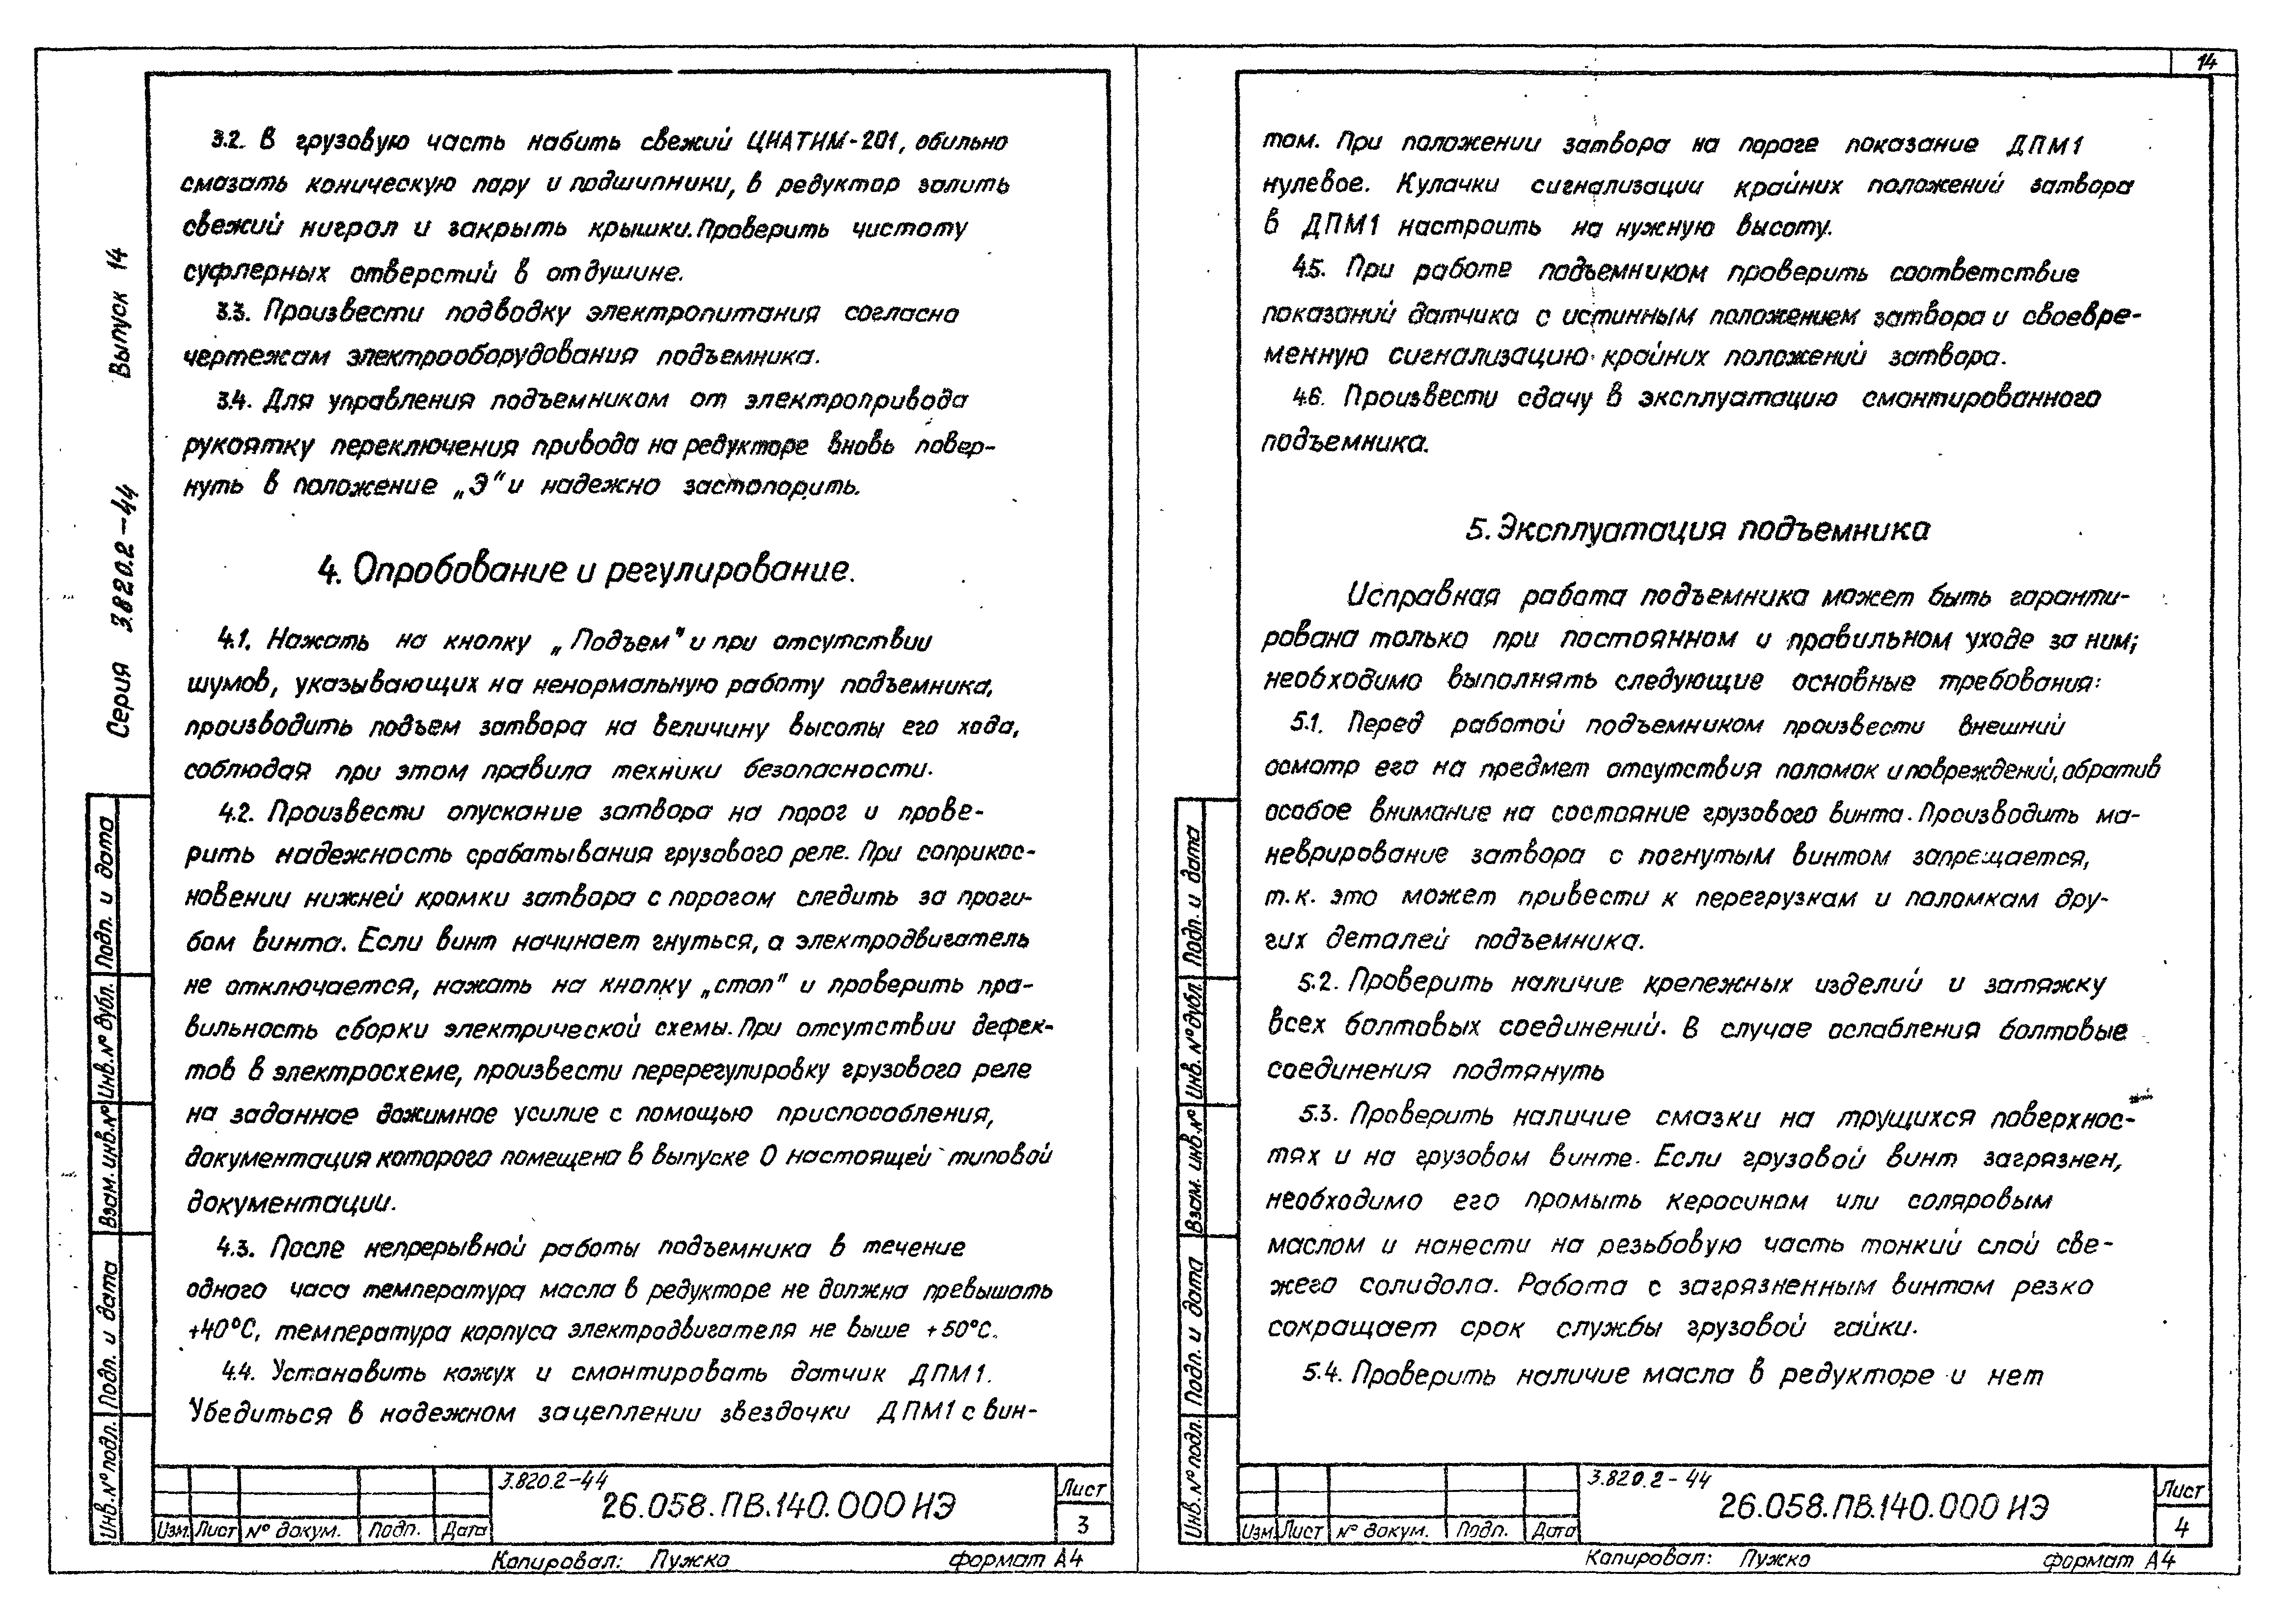 14
3.2. В грузовую часть набить свежий ЦИАТИМ-201, обильно
смазать коническую пару и подшипники, в редуктор залить
свежий нигрол и закрыть крышки. Проверить чистоту
суфлерных отверстий в отдушине.
3.3. Произвести подводку электропитания согласно
чертежам электрооборудования подъемника.
3.4. Для управления подъемником от электропривода
рукоятку переключения привода на редукторе вновь повер-
нуть в положение „Э“ и надежно застопорить.
4. Опробование и регулирование.
4.1. Нажать на кнопку „Подъем" и при отсутствии
шумов, указывающих на ненормальную работу подъемника,
производить подъем затвора на величину высоты его хода,
соблюдая при этом правила техники безопасности.
4.2. Произвести опускание затвора на порог и прове-
рить надежность срабатывания грузового реле. При соприкос-
новении нижней кромки затвора с порогом следить за проги-
бом винта. Если винт начинает гнуться, а электродвигатель
не отключается, нажать на кнопку „стоп" и проверить пра-
вильность сборки электрической схемы. При отсутствии дефек-
тов в электросхеме, произвести перерегулировку грузового реле
на заданное дожимное усилие с помощью приспособления,
документация которого помещена в выпуске 0 настоящей типовой
документации.
4.3. После непрерывной работы подъемника в течение
одного часа температура масла в редукторе не должна превышать
+40°С, температура корпуса электродвигателя не выше +50°С.
4.4. Установить кожух и смонтировать датчик ДПМ1.
Убедиться в надежном зацеплении звездочки ДПМ1 с вин-
Серия 3.820.2-44 Выпуск 14
Инв. № подл. Подп. и дата Взам. инв. № Инв. № дубл. Подп. и дата
3.820.2-44
26.058.ПВ.140.000 ИЭ
Лист
3
Изм. Лист № докум. Подп. Дата
Копировал: Пужко формат А4
том. При положении затвора на пороге показание ДПМ1
нулевое. Кулачки сигнализации крайних положений затвора
в ДПМ1 настроить на нужную высоту.
4.5. При работе подъемником проверить соответствие
показаний датчика с истинным положением затвора и своевре-
менную сигнализацию крайних положений затвора.
4.6. Произвести сдачу в эксплуатацию смонтированного
подъемника.
5. Эксплуатация подъемника
Исправная работа подъемника может быть гаранти-
рована только при постоянном и правильном уходе за ним;
необходимо выполнять следующие основные требования:
5.1. Перед работой подъемником произвести внешний
осмотр его на предмет отсутствия поломок и повреждений, обратив
особое внимание на состояние грузового винта. Производить ма-
неврирование затвора с погнутым винтом запрещается,
т.к. это может привести к перегрузкам и поломкам дру-
гих деталей подъемника.
5.2. Проверить наличие крепежных изделий и затяжку
всех болтовых соединений. В случае ослабления болтовые
соединения подтянуть
5.3. Проверить наличие смазки на трущихся поверхнос-
тях и на грузовом винте. Если грузовой винт загрязнен,
необходимо его промыть керосином или соляровым
маслом и нанести на резьбовую часть тонкий слой све-
жего солидола. Работа с загрязненным винтом резко
сокращает срок службы грузовой гайки.
5.4. Проверить наличие масла в редукторе и нет
Инв. № подл. Подп. и дата Взам. инв. № Инв. № дубл. Подп. и дата
3.820.2-44
26.058.ПВ.140.000 ИЭ
Лист
4
Изм. Лист № докум. Подп. Дата
Копировал: Пужко формат А4